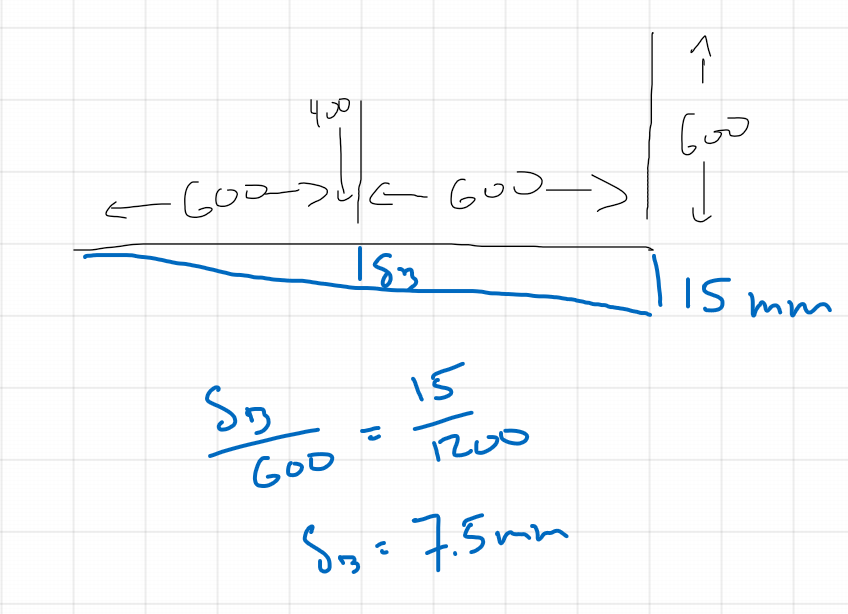 400
← 600 → ← 600 → 600
δB 15 mm
δB/600 = 15/1200
δB = 7.5 mm